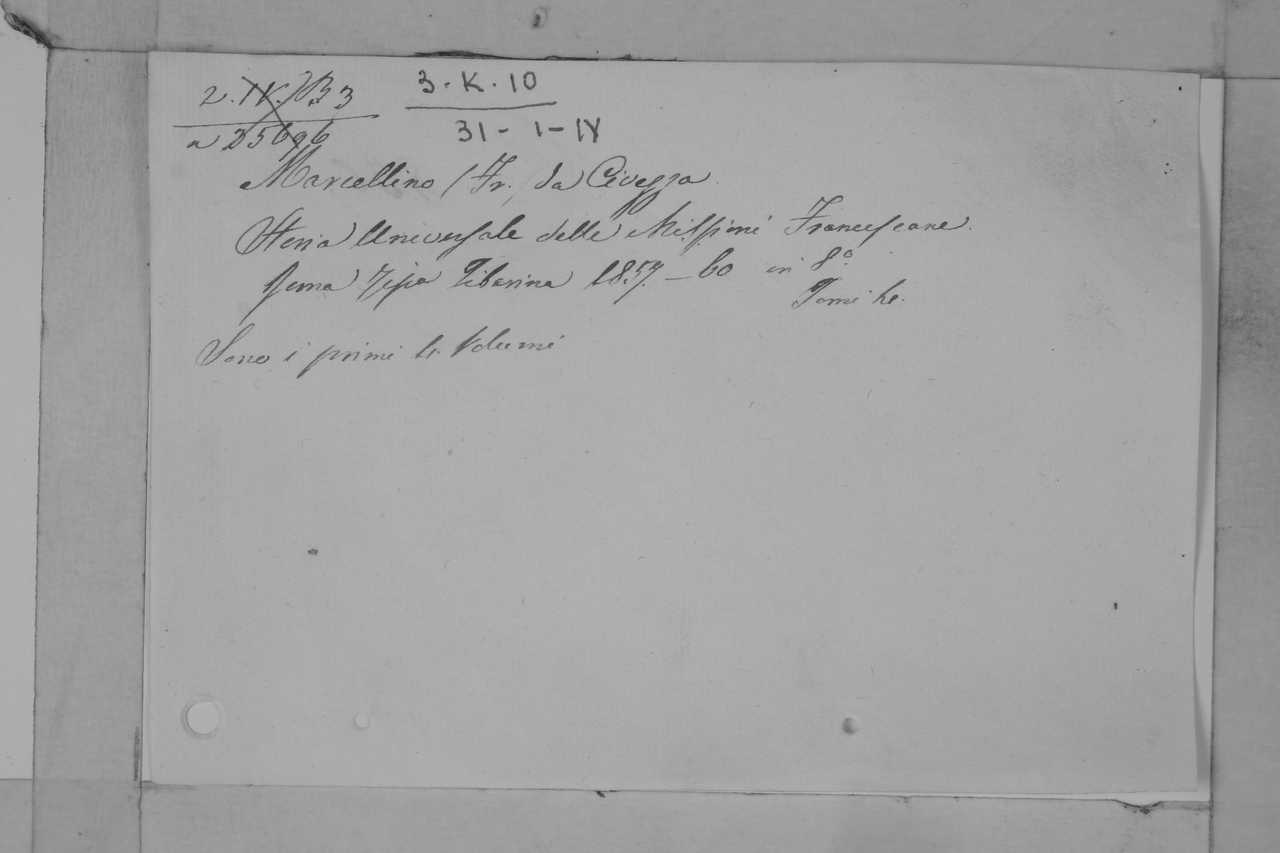 3. K. 10
31 - 1 - IV
Marcellino (Fr.) da Civezza
Storia Universale delle Missioni Francescane.
Roma Tipa Tiberina 1857.-60 in 8º
Tomi
Sono i primi Volumi